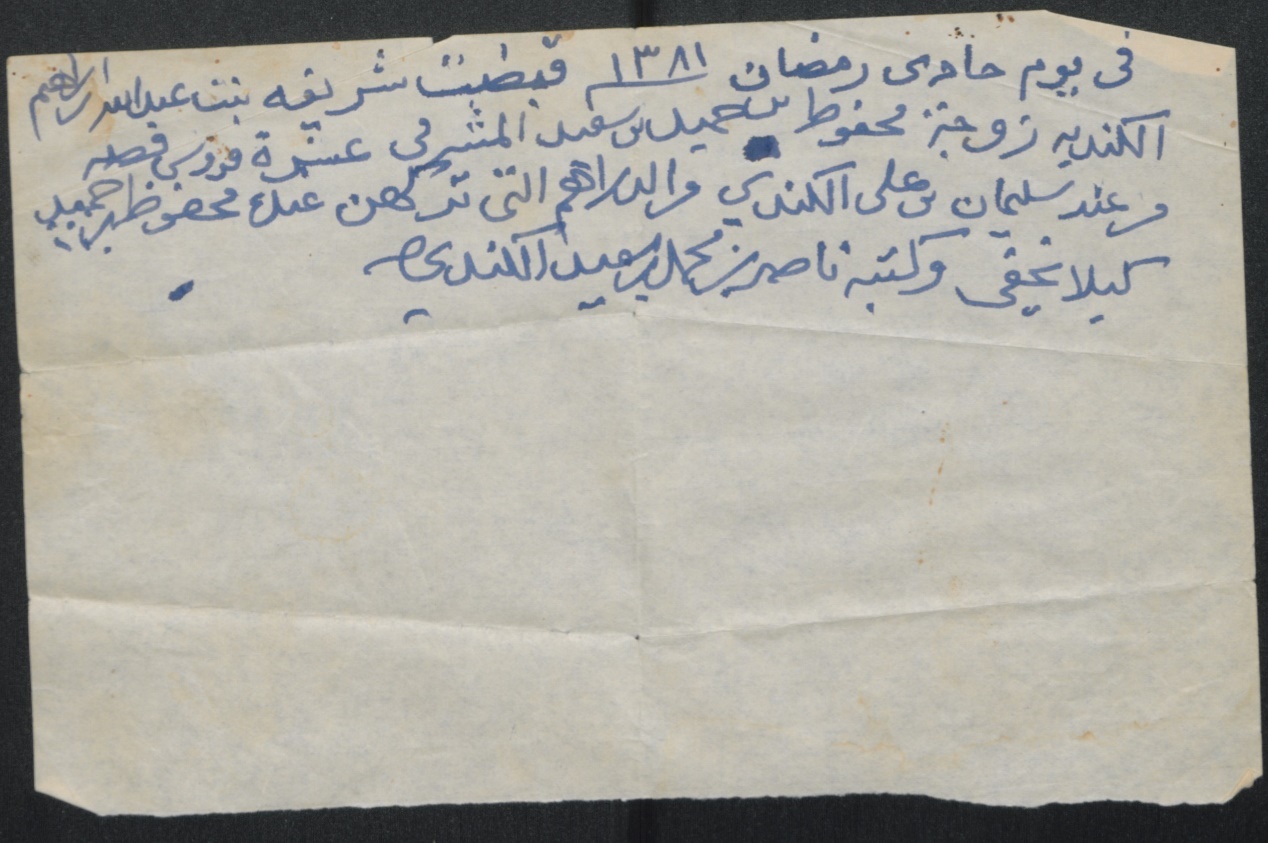 في يوم حادى رمضان ١٣٨١ قبضت شريفه بنت عبدالله ابراهيم
الكنديه زوجة محفوظ بن حميد بن سعيد المشرفي عشرة قروش فضه
من عند سليمان بن على الكندي والدراهم التى تركهن عند محفوظ بن حميد
كيلا تخفى وكتبه ناصر بن محمد بن سعيد الكندي